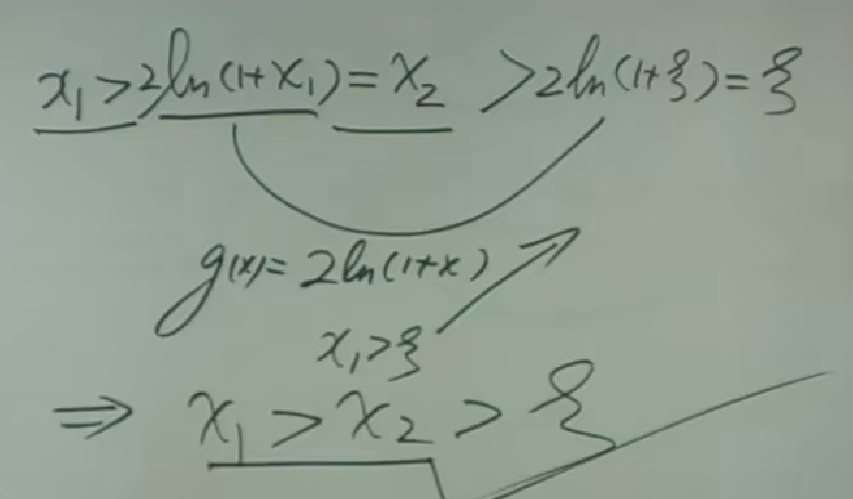 x₁ > 2ln(1+x₁) = x₂ > 2ln(1+ξ) = ξ
g(x) = 2ln(1+x)
x₁ > ξ
⇒ x₁ > x₂ > ξ